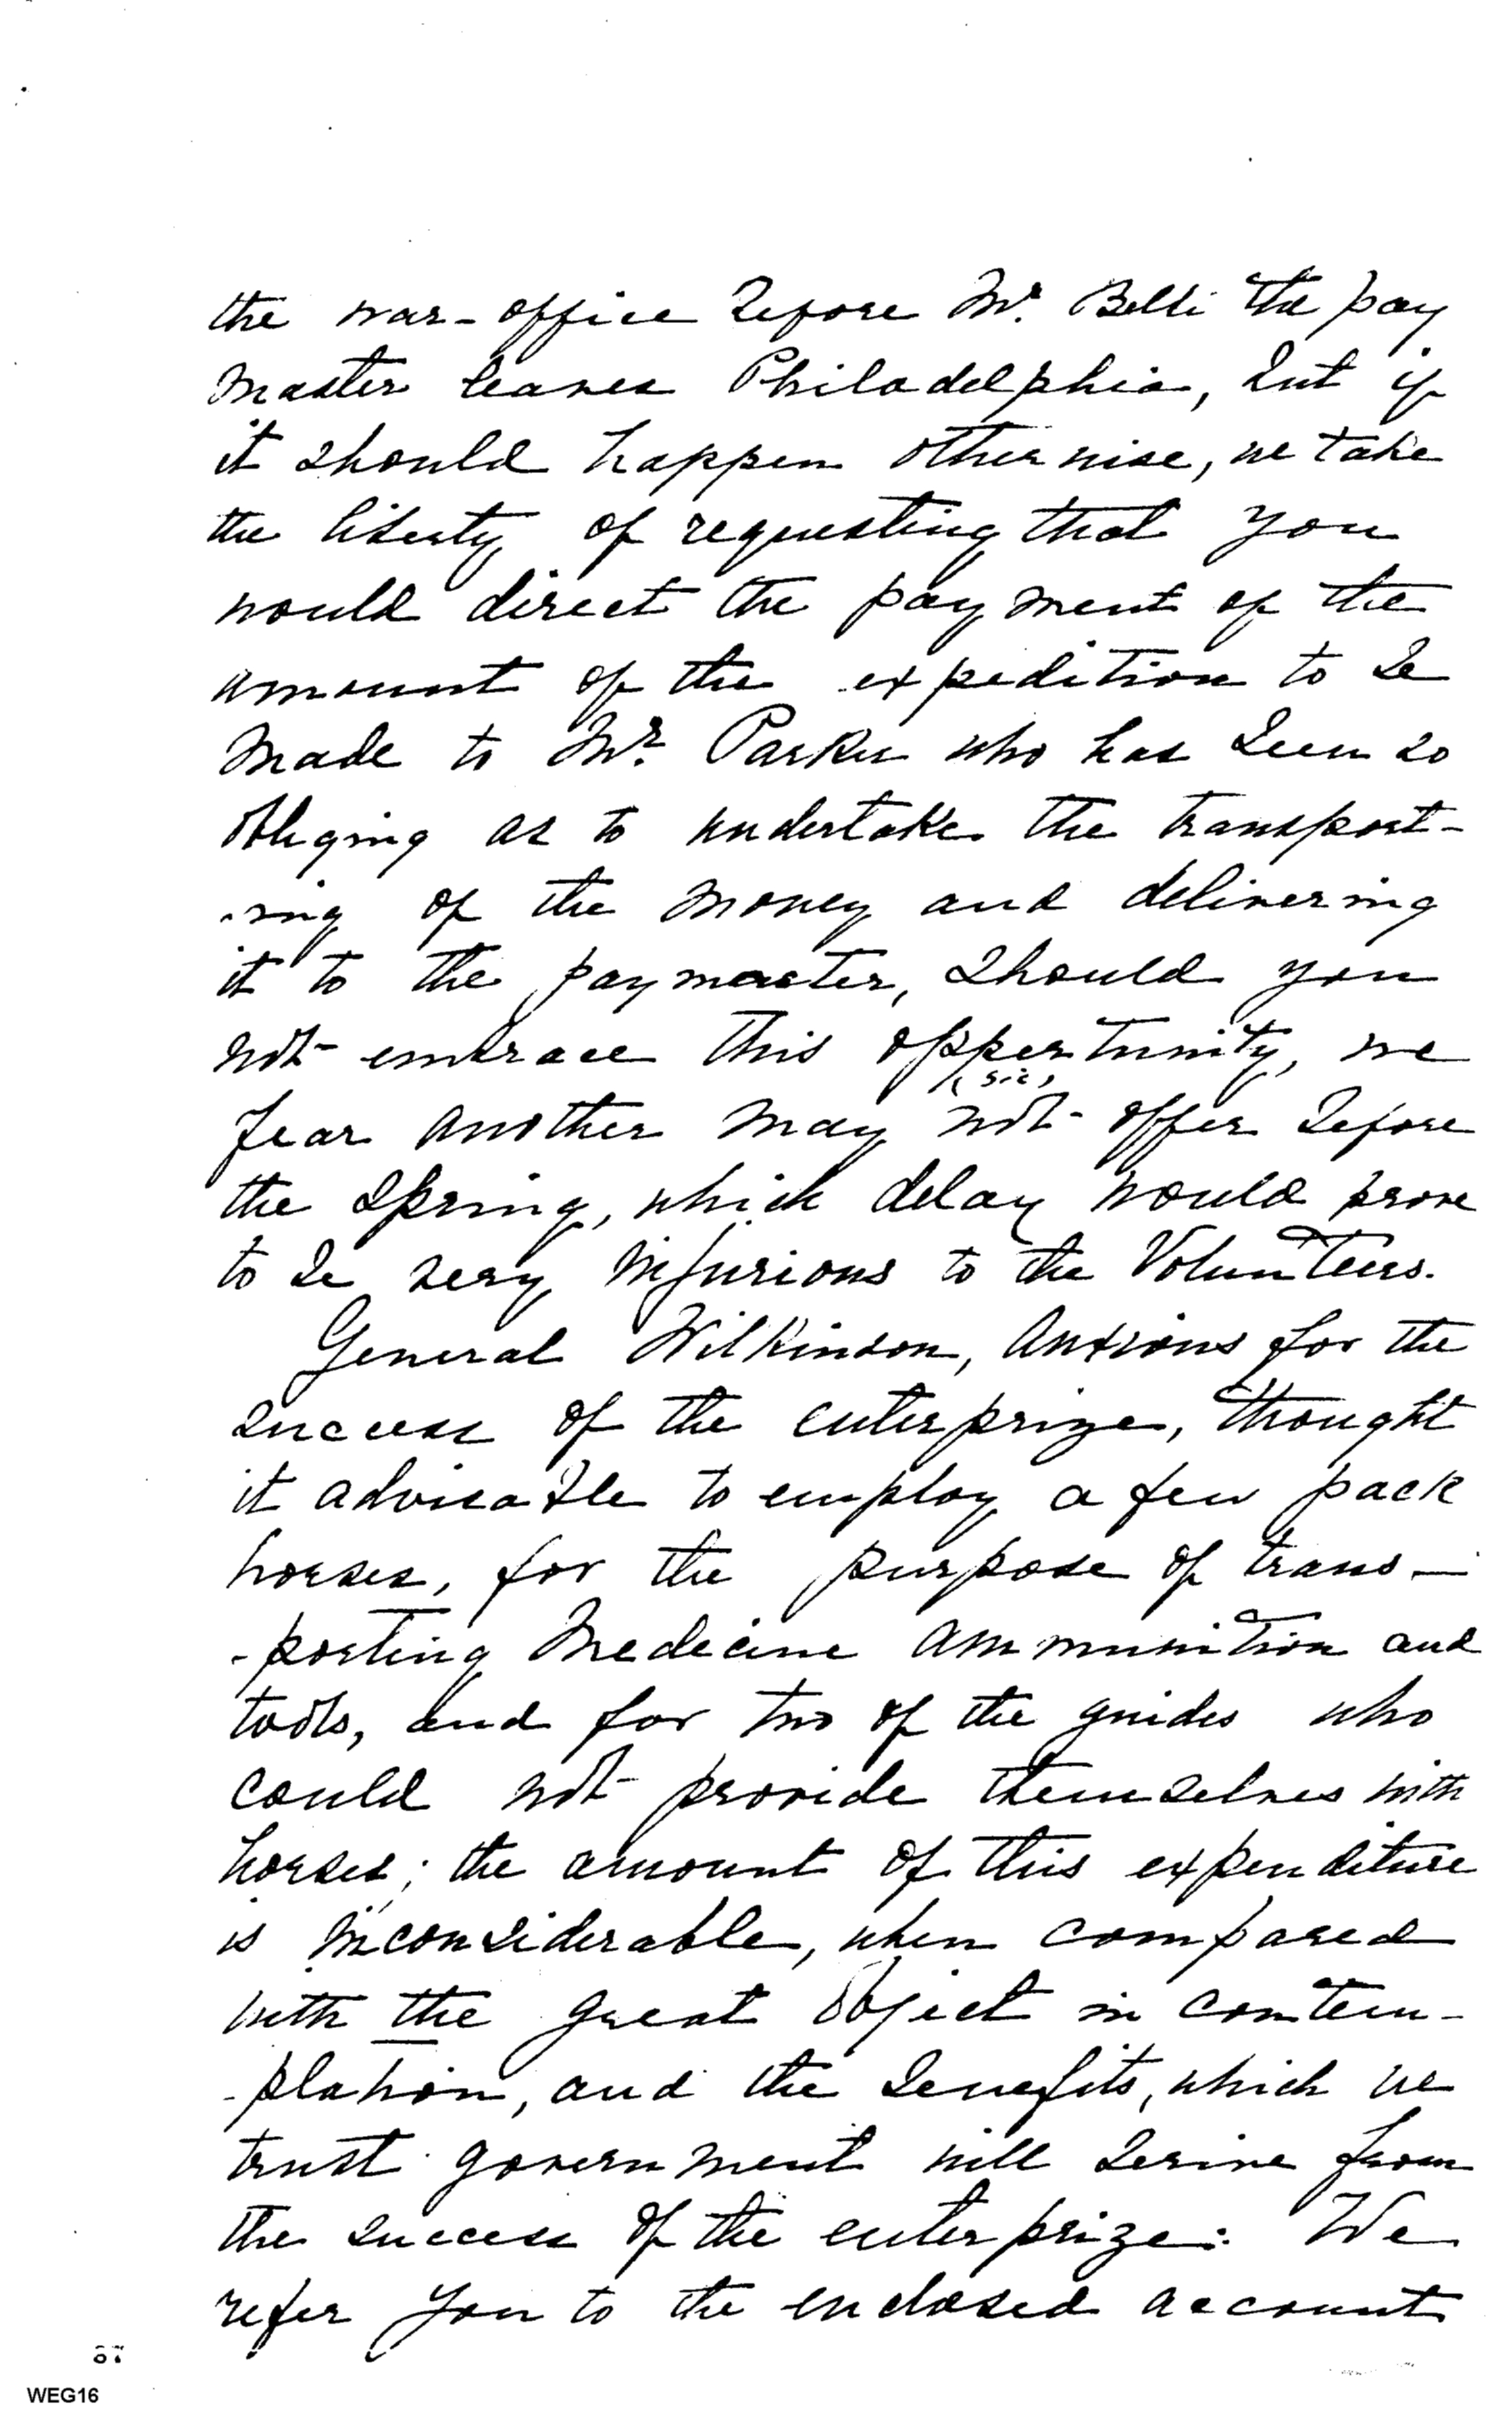 the war-office before Mr. Belli the pay
master leaves Philadelphia, but if
it should happen otherwise, we take
the liberty of requesting that you
would direct the payment of the
amount of the expedition to be
made to Mr. Parker who has been so
obliging as to undertake the transport-
-ing of the money and delivering
it to the paymaster, should you
not embrace this oppertunity, we
(sic)
fear another may not offer before
the spring, which delay would prove
to be very injurious to the Volunteers.
General Wilkinson, anxious for the
success of the enterprize, thought
it advisable to employ a few pack
horses, for the purpose of trans-
-porting medecine ammunition and
tools, and for two of the guides who
could not provide themselves with
horses; the amount of this expenditure
is inconsiderable, when compared
with the great object in contem-
-plation, and the benefits, which we
trust government will derive from
the success of the enterprize: We
refer you to the enclosed account
67
WEG16